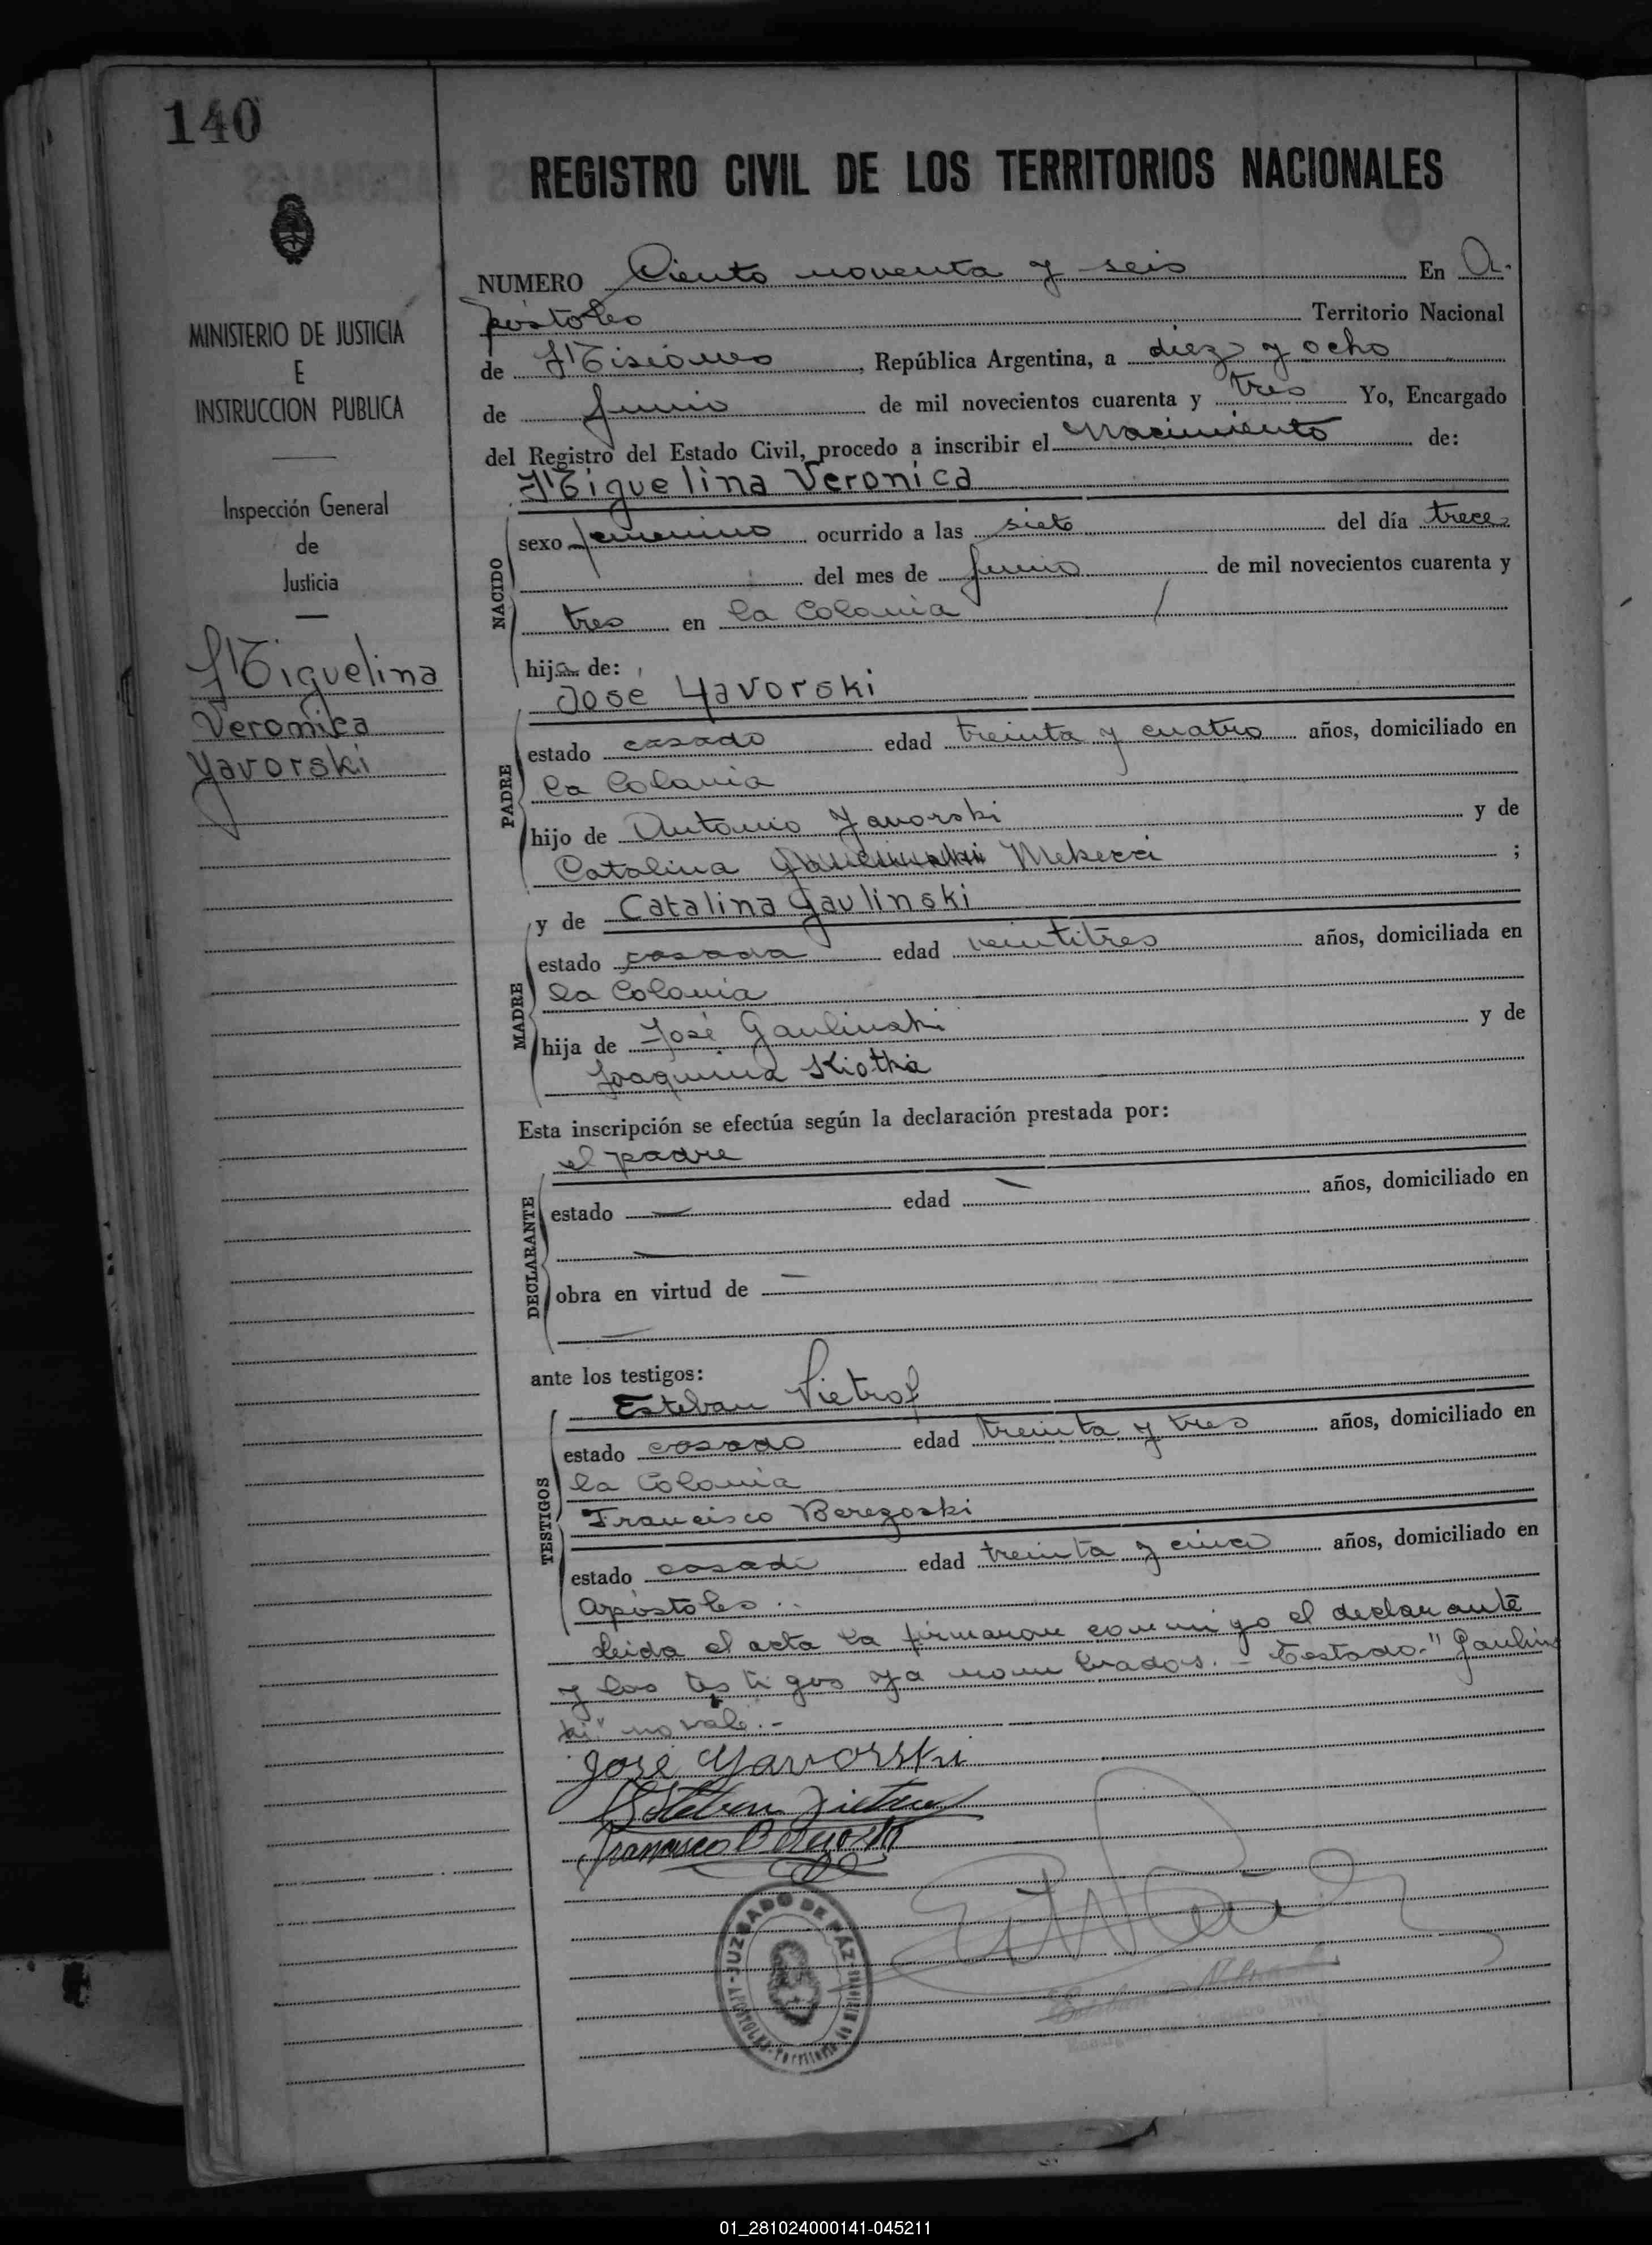 140
REGISTRO CIVIL DE LOS TERRITORIOS NACIONALES
MINISTERIO DE JUSTICIA
E
INSTRUCCION PUBLICA
Inspección General
de
Justicia
Miguelina
Veronica
Yavorski
NUMERO Ciento noventa y seis En A-
póstoles Territorio Nacional
de Misiones, República Argentina, a diez y ocho
de Junio de mil novecientos cuarenta y tres Yo, Encargado
del Registro del Estado Civil, procedo a inscribir el Nacimiento de:
Miguelina Veronica
NACIDO
sexo femenino ocurrido a las siete del día trece
del mes de Junio de mil novecientos cuarenta y
tres en la Colonia
hija de:
José Yavorski
PADRE
estado casado edad treinta y cuatro años, domiciliado en
la Colonia
hijo de Antonio Yavorski y de
Catalina ;
y de Catalina Gaulinski
MADRE
estado casada edad veintitres años, domiciliada en
la Colonia
hija de José Gaulinski y de
Joaquina
Esta inscripción se efectúa según la declaración prestada por:
el padre
DECLARANTE
estado — edad — años, domiciliado en
—
obra en virtud de —
—
ante los testigos:
Esteban Pietrof
TESTIGOS
estado casado edad treinta y tres años, domiciliado en
la Colonia
Francisco Beregoski
estado casado edad treinta y cinco años, domiciliado en
Apóstoles
Leida el acta la firmaron conmigo el declarante
y los testigos ya nombrados. - Testado "Gaulins
ki" no vale.-
José Yavorski
Esteban
Francisco
JUZGADO DE PAZ
APOSTOLES - Territorio de
01_281024000141-045211